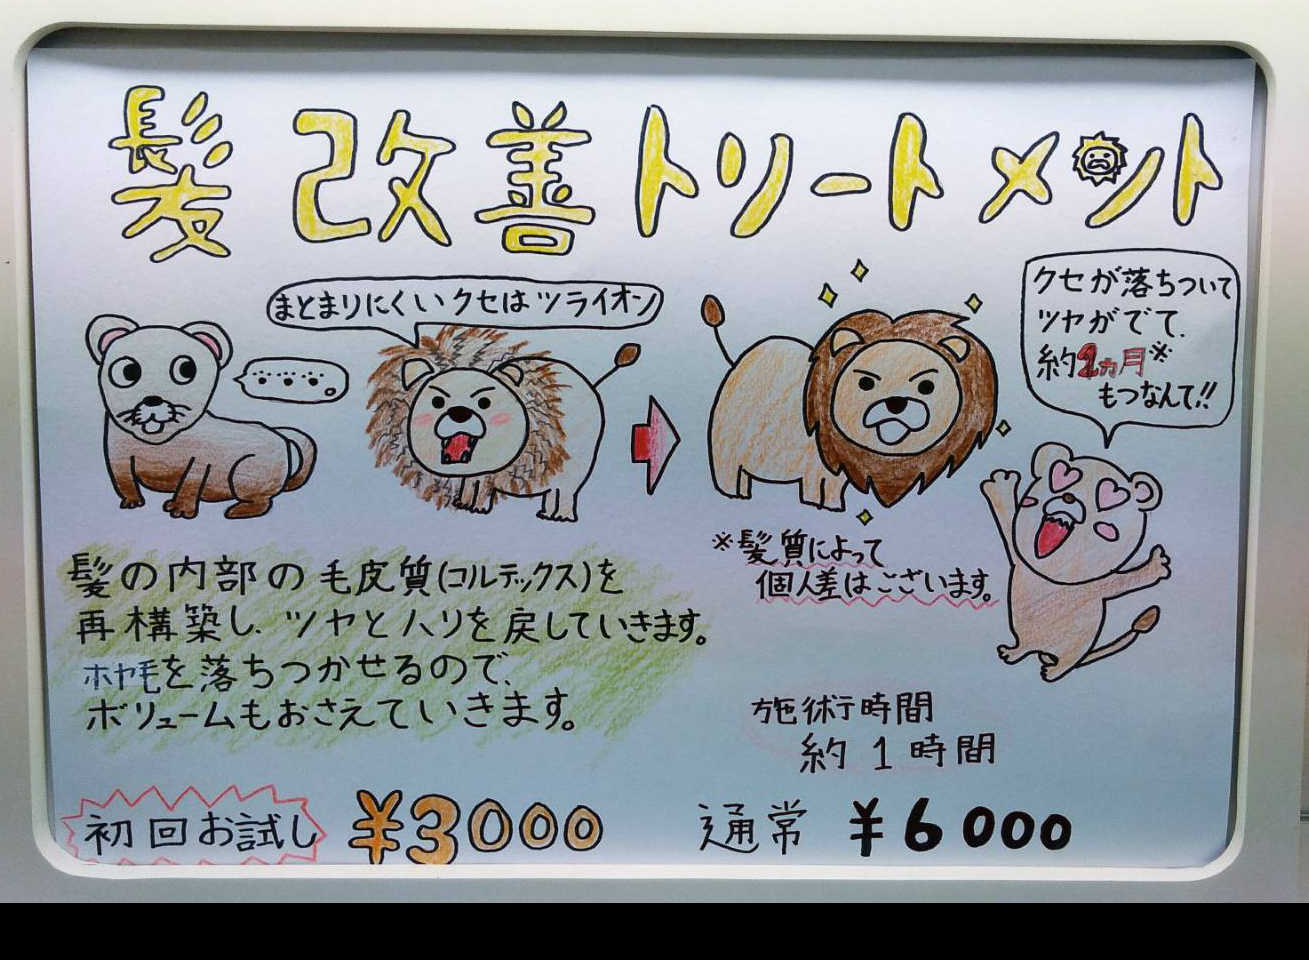 髪改善トリートメント
まとまりにくいクセはツライオン
・・・・。
クセが落ちついて
ツヤがでて、
約2ヵ月※
もつなんて!!
※髪質によって
個人差はございます。
髪の内部の毛皮質(コルテックス)を
再構築し、ツヤとハリを戻していきます。
ホヤ毛を落ちつかせるので、
ボリュームもおさえていきます。
施術時間
約1時間
初回お試し ¥3000 通常 ¥6000